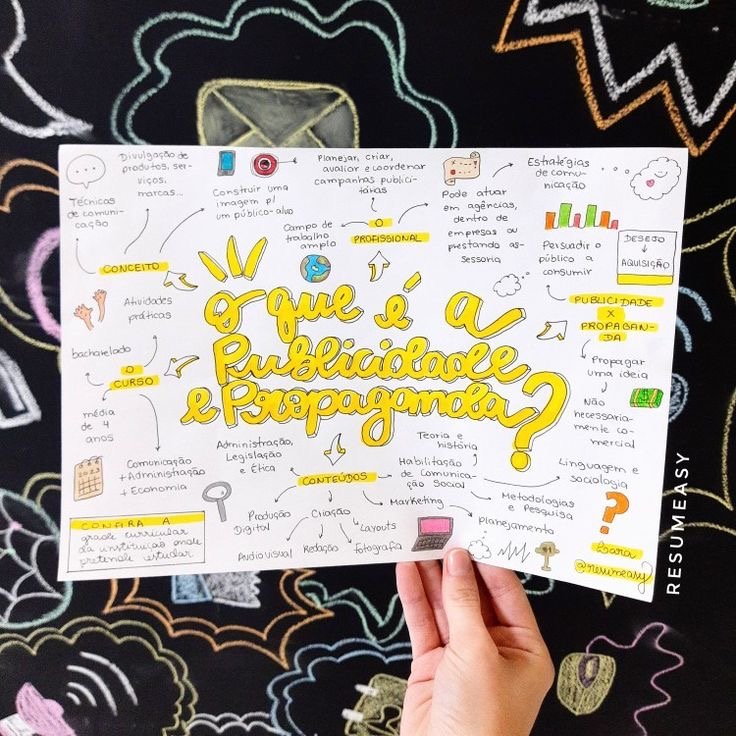 O que é a
Publicidade
e Propaganda?
CONCEITO
Técnicas
de comuni-
cação
Divulgação de
produtos, ser-
viços,
marcas...
Construir uma
imagem p/
um público-alvo
O
PROFISSIONAL
Campo de
trabalho
amplo
Planejar, criar,
avaliar e coordenar
campanhas publici-
tárias
Pode atuar
em agências,
dentro de
empresas ou
prestando as-
sessoria
Estratégias
de comu-
nicação
Persuadir o
público a
consumir
DESEJO
AQUISIÇÃO
PUBLICIDADE
X
PROPAGAN-
DA
Propagar
uma ideia
Não
necessaria-
mente co-
mercial
O
CURSO
Atividades
práticas
bacharelado
média
de 4
anos
Comunicação
+ Administração
+ Economia
2023
CONTEÚDOS
Administração,
Legislação
e Ética
Produção
Digital
Criação
Audiovisual
Redação
Layouts
Fotografia
Marketing
Planejamento
Teoria e
história
Habilitação
de Comunica-
ção Social
Metodologias
e Pesquisa
Linguagem e
sociologia
CONFIRA A
grade curricular
da instituição onde
pretende estudar
Sara
@resumeasy
RESUMEASY